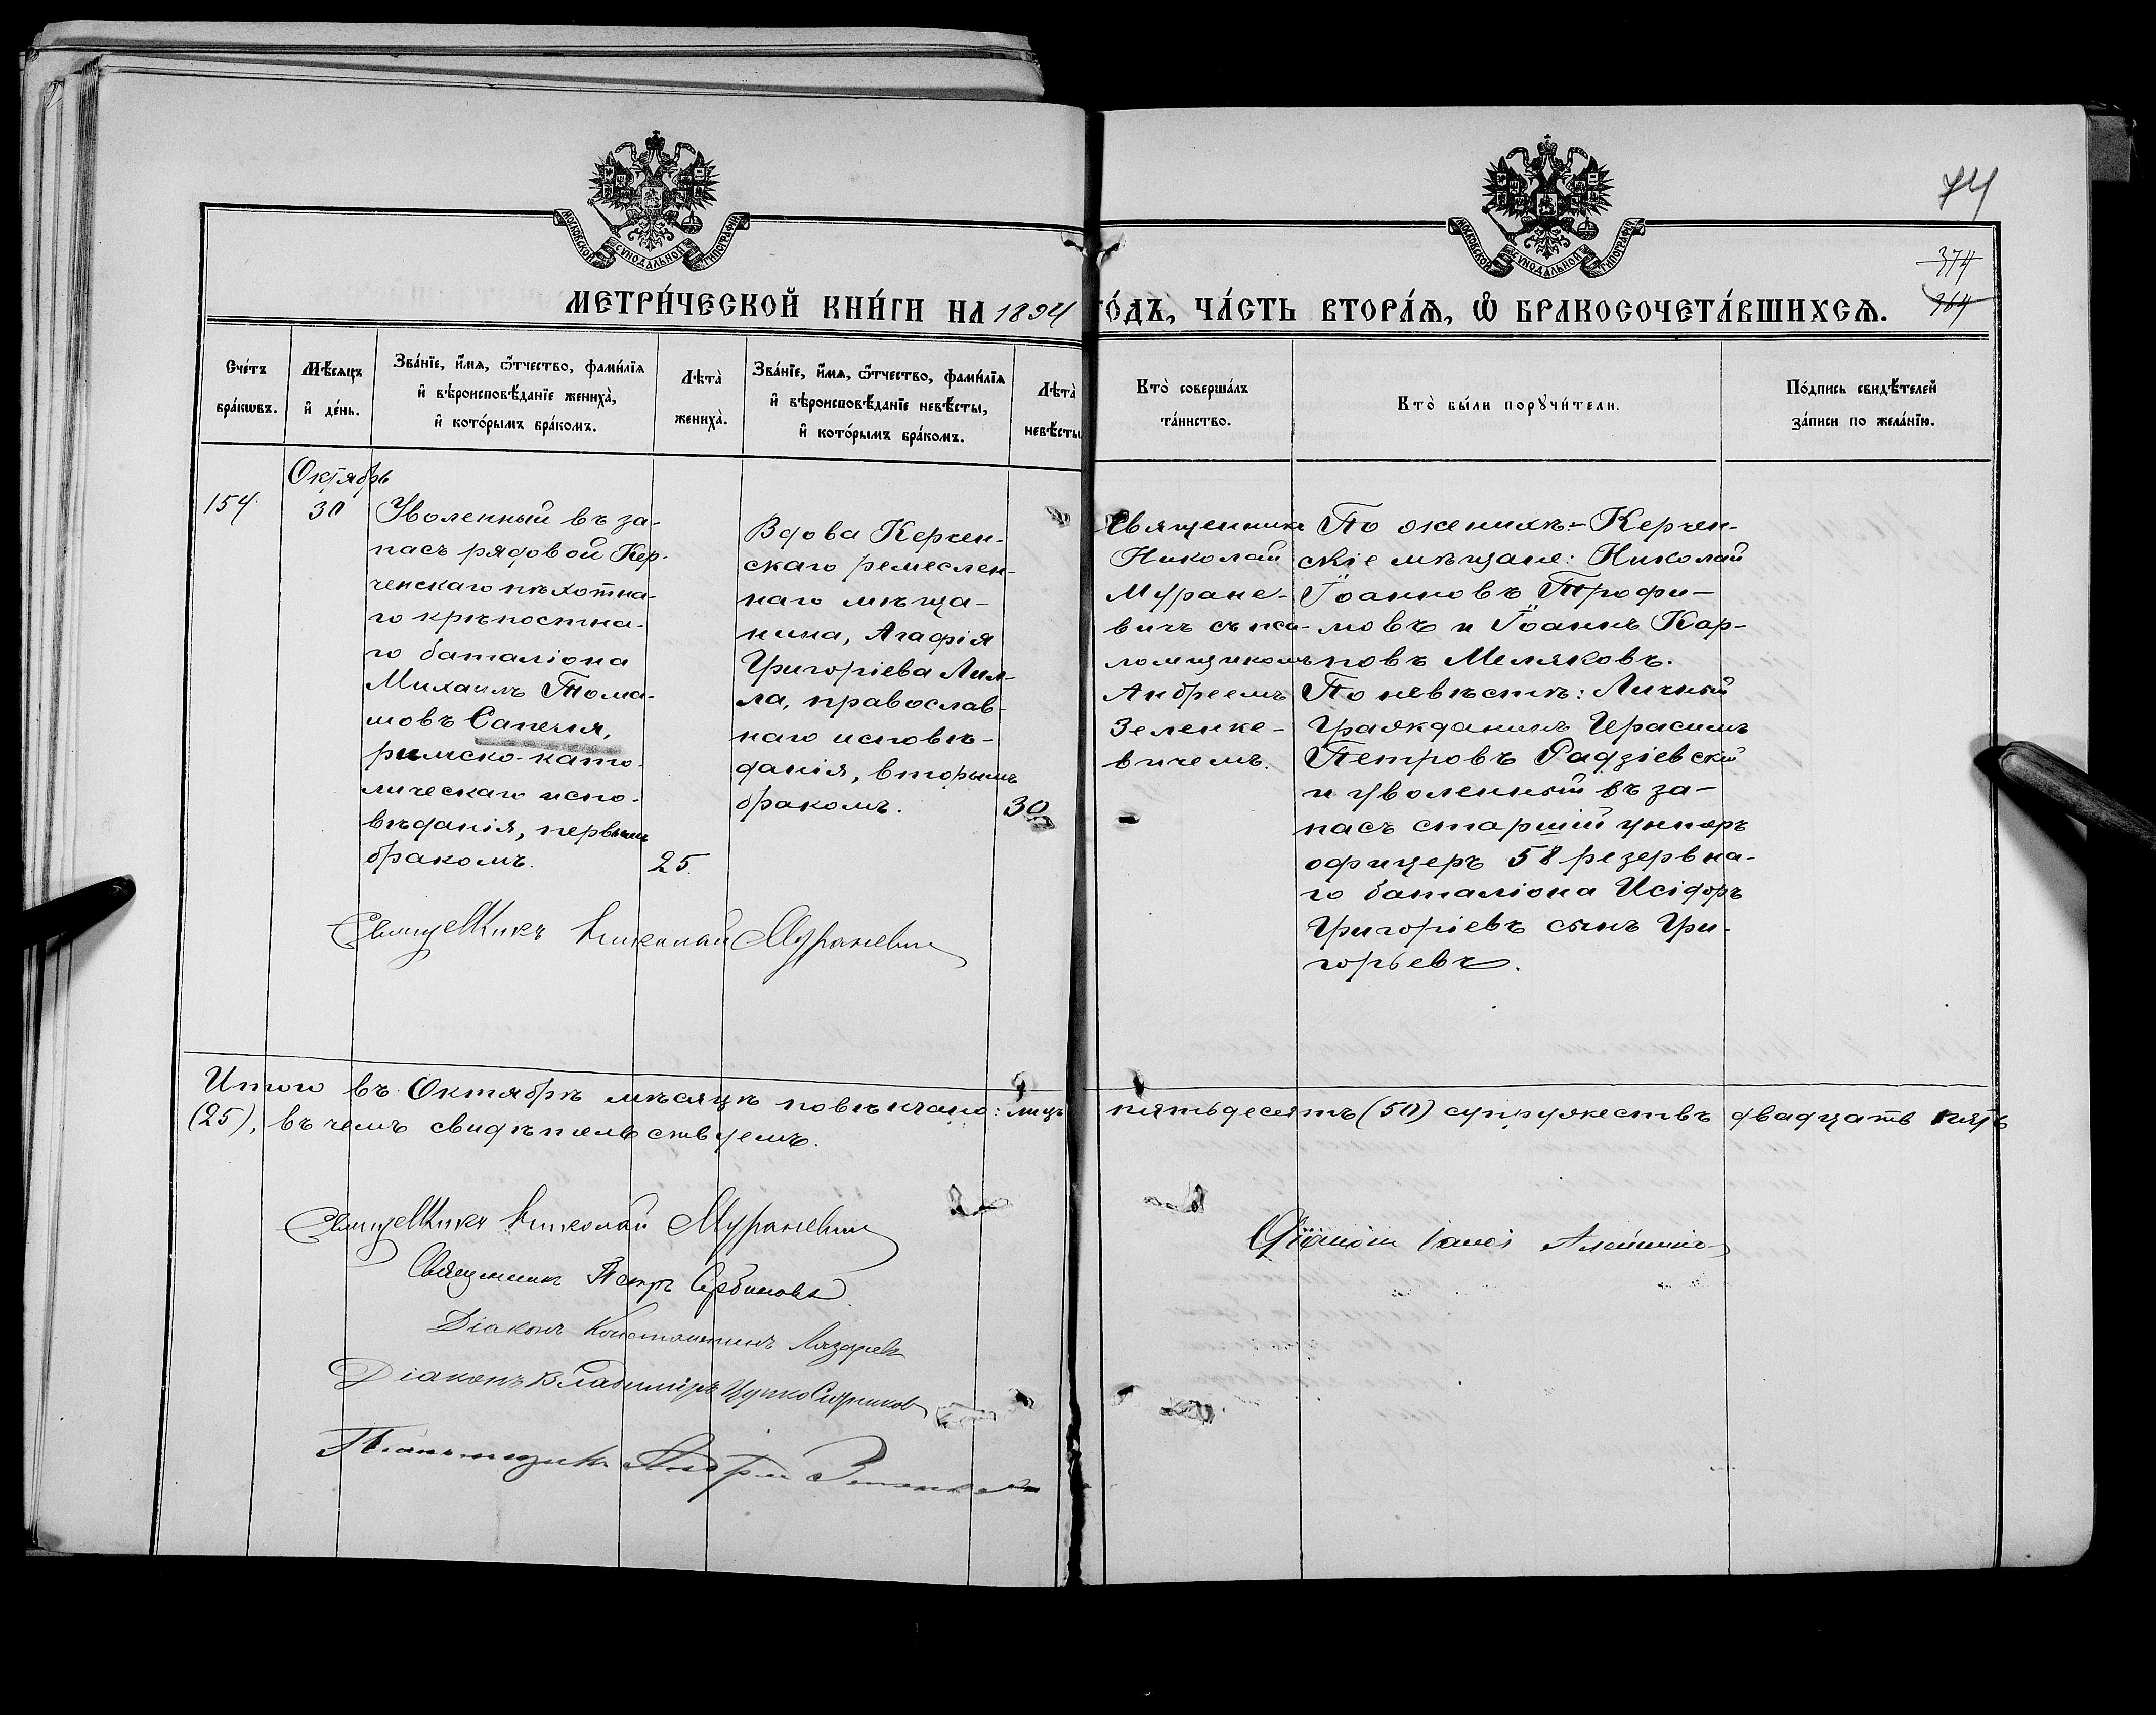 МОСКОВСКОЙ СѴНОДАЛЬНОЙ ТИПОГРАФІИ
МОСКОВСКОЙ СѴНОДАЛЬНОЙ ТИПОГРАФІИ
74
374
364
МЕТРИ́ЧЕСКОЙ КНИ́ГИ НА 1894 ГО́ДЪ, ЧА́СТЬ ВТОРА́Я, Ѡ БРАКОСОЧЕТА́ВШИХСЯ.
Сче́тъ
бра́кѡвъ.
Мѣ́сяцъ
и де́нь.
Зва́нїе, и҆́мя, ѻ҆́тчество, фами́лїя
и҆ вѣроисповѣ́данїе жениха̀,
и҆ кото́рымъ бра́комъ.
Лѣта̀
жениха̀.
Зва́нїе, и҆́мя, ѻ҆́тчество, фами́лїя
и҆ вѣроисповѣ́данїе невѣ́сты,
и҆ кото́рымъ бра́комъ.
Лѣта̀
невѣ́сты
Кто̀ соверша́лъ
та́инство.
Кто̀ бы́ли порꙋчи́тели.
По́дпись свидѣ́телей
за́писи по жела́нїю.
154.
Октябрь
30
Уволенный въ за-
пасъ рядовой Кер-
ченскаго пѣхотна-
го крѣпостна-
го баталіона
Михаилъ Тома-
шовъ Сапеля,
римско-като-
лическаго испо-
вѣданія, первымъ
бракомъ.
25.
Вдова Керчен-
скаго ремеслен-
наго мѣща-
нина, Агафія
Григоріева Лил-
ла, православ-
наго исповѣ-
данія, вторымъ
бракомъ.
30
Священникъ
Николай
Муране-
вичъ съ пса-
ломщикомъ
Андреемъ
Зеленке-
вичемъ.
По женихѣ:- Керчен-
скіе мѣщане: Николай
Іоанновъ Трофи-
мовъ и Іоаннъ Кар-
повъ Меляковъ.
По невѣстѣ: Личный
Гражданинъ Герасимъ
Петровъ Радзіевскій
и уволенный въ за-
пасъ старшій унтеръ
офицеръ 58 резервна-
го баталіона Исідоръ
Григоріевъ сынъ Гри-
горьевъ.
Священникъ Николай Мураневичъ
Итого въ Октябрѣ мѣсяцѣ повѣнчано: лицъ пятьдесятъ (50) супружествъ двадцать пять
(25), въ чемъ свидѣтельствуемъ.
Священникъ Николай Мураневичъ
Священникъ Петръ Сербиновъ
Діаконъ Константинъ Лазаревъ
Діаконъ Владиміръ
Псаломщикъ Андрей Зеленкевичъ